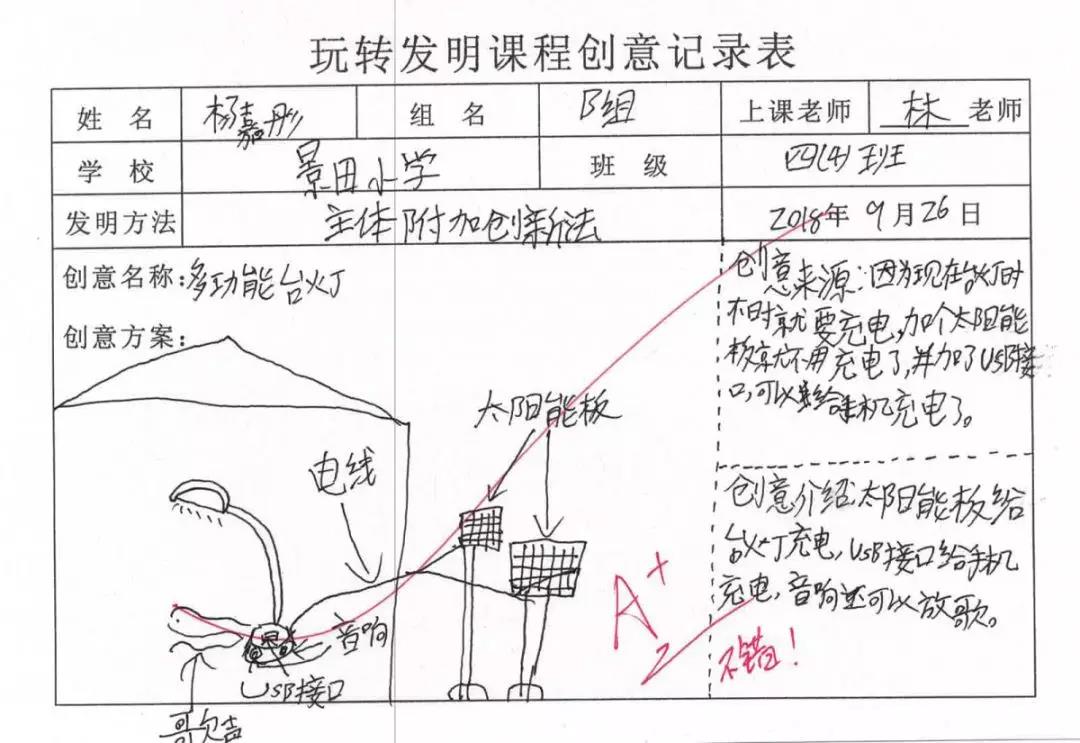 玩转发明课程创意记录表
姓名 杨嘉彤 组名 B组 上课老师 林 老师
学校 景田小学 班级 四(4)班
发明方法 主体附加创新法 2018年 9月26日
创意名称:多功能台灯
创意方案:
太阳能板
电线
音响
USB接口
歌声
创意来源:因为现在台灯时
不时就要充电,加个太阳能
板就不用充电了,并加了USB接
口,可以给手机充电了。
创意介绍:太阳能板给
台灯充电,USB接口给手机
充电,音响还可以放歌。
A+
不错!